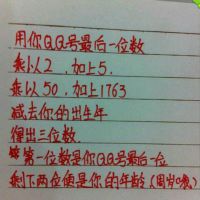 用你QQ号最后一位数
乘以2，加上5.
乘以50，加上1763
减去你的出生年
得出三位数.
第一位数是你QQ号最后一位
剩下两位便是你的年龄（周岁哦）